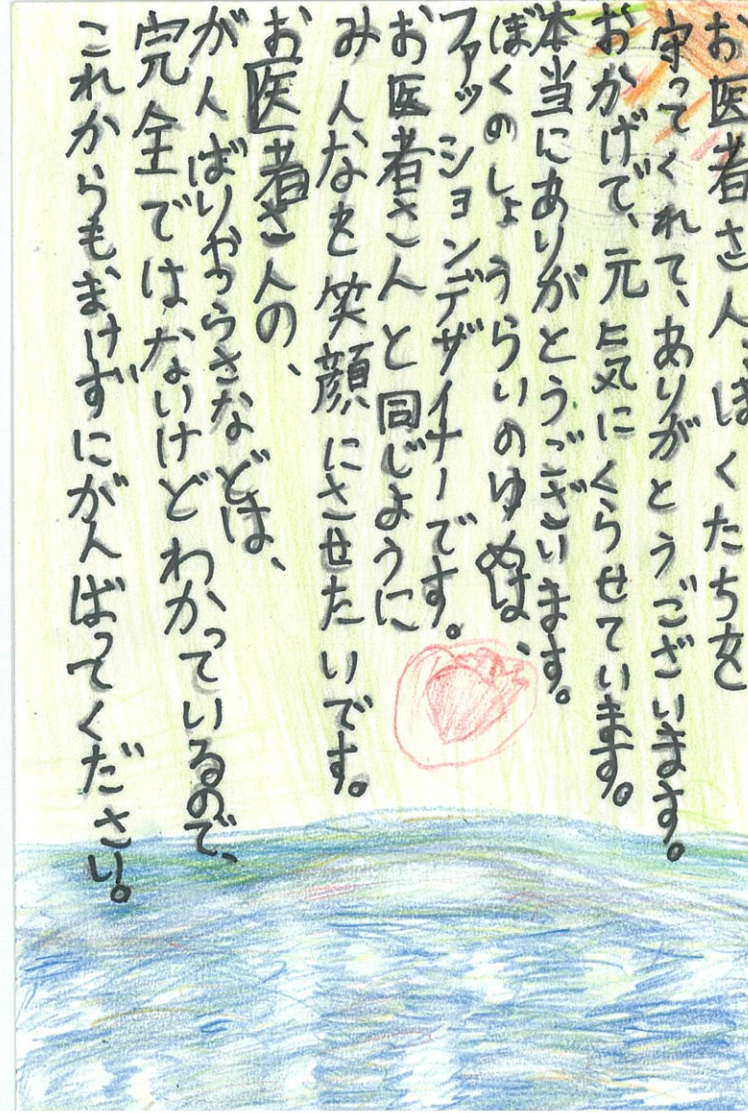 お医者さん、ぼくたちを
守ってくれて、ありがとうございます。
おかげで、元気にくらせています。
本当にありがとうございます。
ぼくのしょうらいのゆめは、
ファッションデザイナーです。
お医者さんと同じように
みんなを笑顔にさせたいです。
お医者さんの、
がんばりやつらさなどは、
完全ではないけどわかっているので、
これからもまけずにがんばってください。